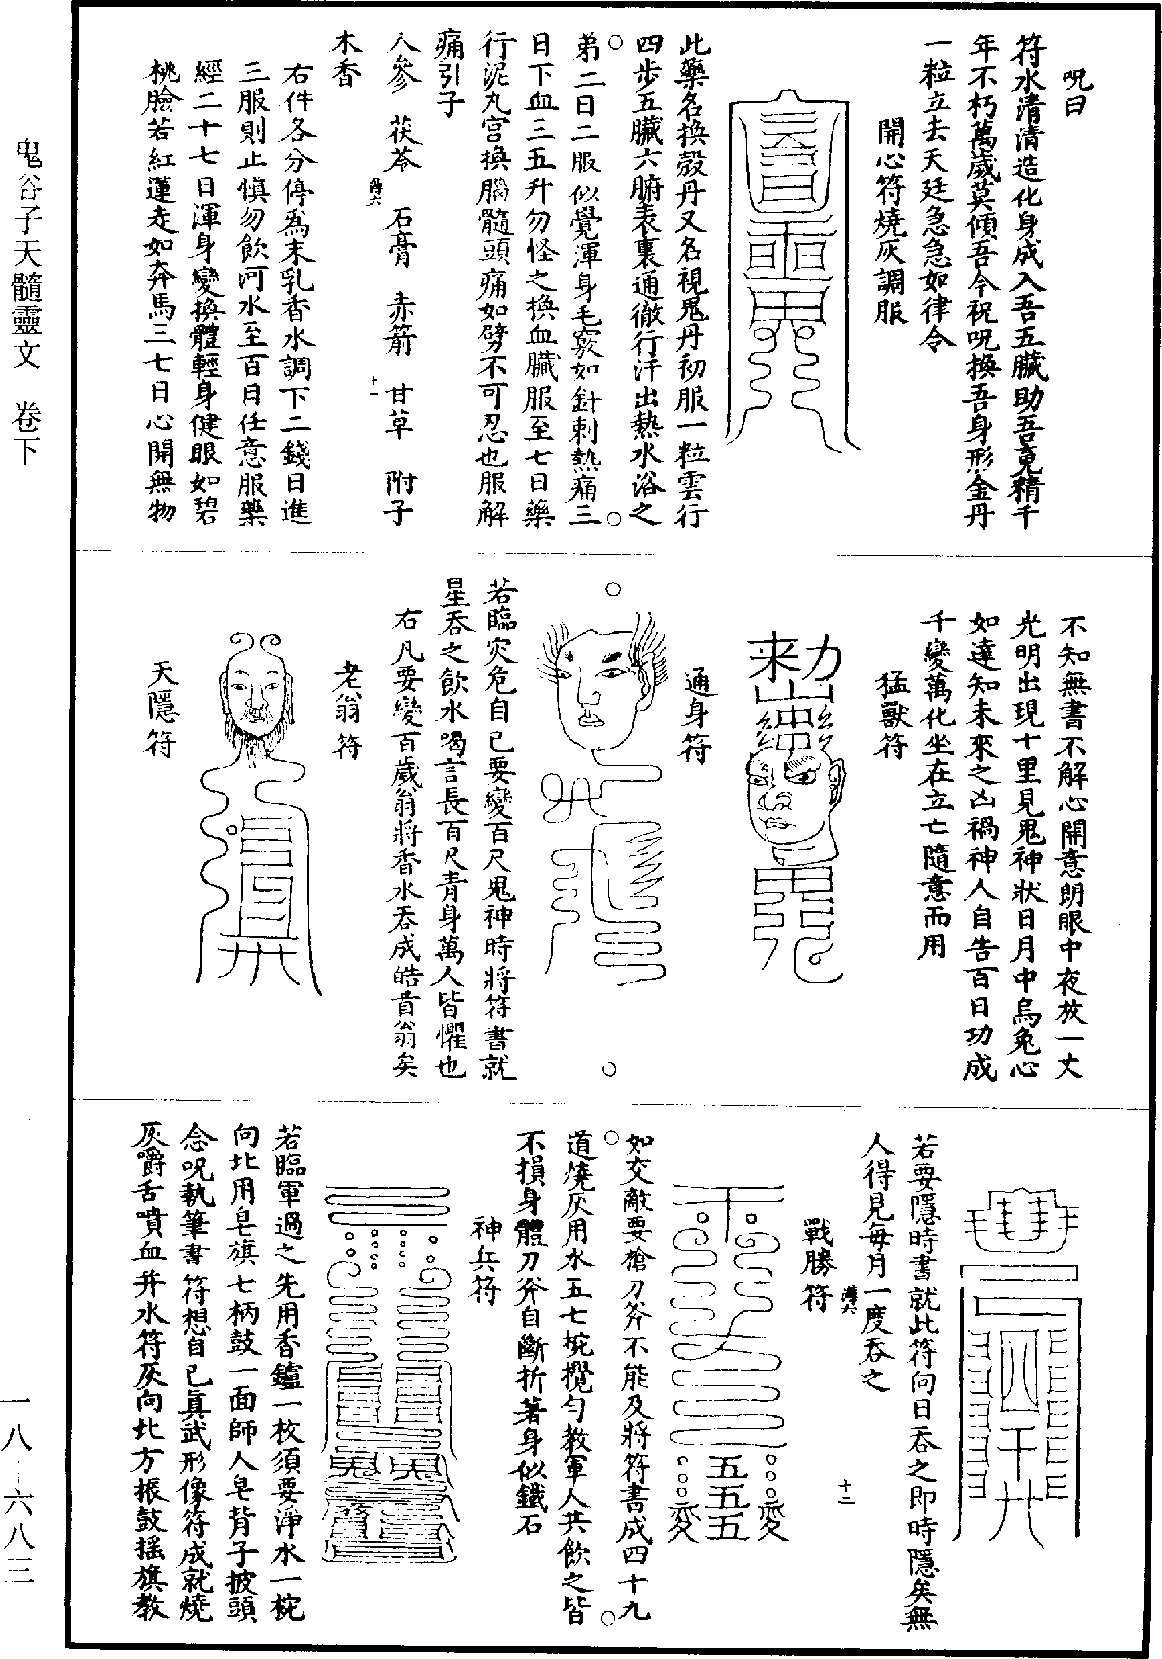 呪曰
符水清清造化身成入吾五臟助吾竟精千
年不朽萬歲莫傾吾今祝呪換吾身形金丹
一粒立去天廷急急如律令
開心符燒灰調服
此藥名換殼丹又名視鬼丹初服一粒雲行
四步五臟六腑表裏通徹行汗出熱水浴之
第二日二服似覺渾身毛竅如針刺熱痛三
日下血三五升勿怪之換血臟服至七日藥
行泥丸宮換腦髓頭痛如劈不可忍也服解
痛引子
人參 茯苓 石膏 赤箭 甘草 附子
十一
木香
右件各分停爲末乳香水調下二錢日進
三服則止慎勿飲河水至百日任意服藥
經二十七日渾身變換體輕身健眼如碧
桃臉若紅蓮走如奔馬三七日心開無物
不知無書不解心開意朗眼中夜放一丈
光明出現十里見鬼神狀日月中烏兔心
如達知未來之凶禍神人自告百日功成
千變萬化坐在立亡隨意而用
猛獸符
勑
通身符
若臨灾危自已要變百尺鬼神時將符書就
星吞之飲水喝言長百尺青身萬人皆懼也
右凡要變百歲翁將香水吞成皓首翁矣
老翁符
天隱符
若要隱時書就此符向日吞之即時隱矣無
人得見每月一度吞之
十二
戰勝符
五五五
變
變
如交敵要槍刀斧不能及將符書成四十九
道燒灰用水五七椀攪勻教軍人共飲之皆
不損身體刀斧自斷折著身似鐵石
神兵符
若臨軍過之先用香鑪一枚須要淨水一椀
向北用皂旗七柄鼓一面師人皂背子披頭
念呪執筆書符想自已眞武形像符成就燒
灰嚼舌噴血并水符灰向北方振鼓摇旗教
鬼谷子天髓靈文 卷下
一八－六八三